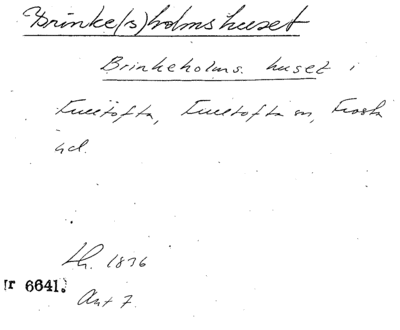 Brinke(s)holmshuset
Brinkeholms huset i
Fulltofta, Fulltofta sn, Frosta
hd.
Lh. 1836
r 6641.
Avt 7.